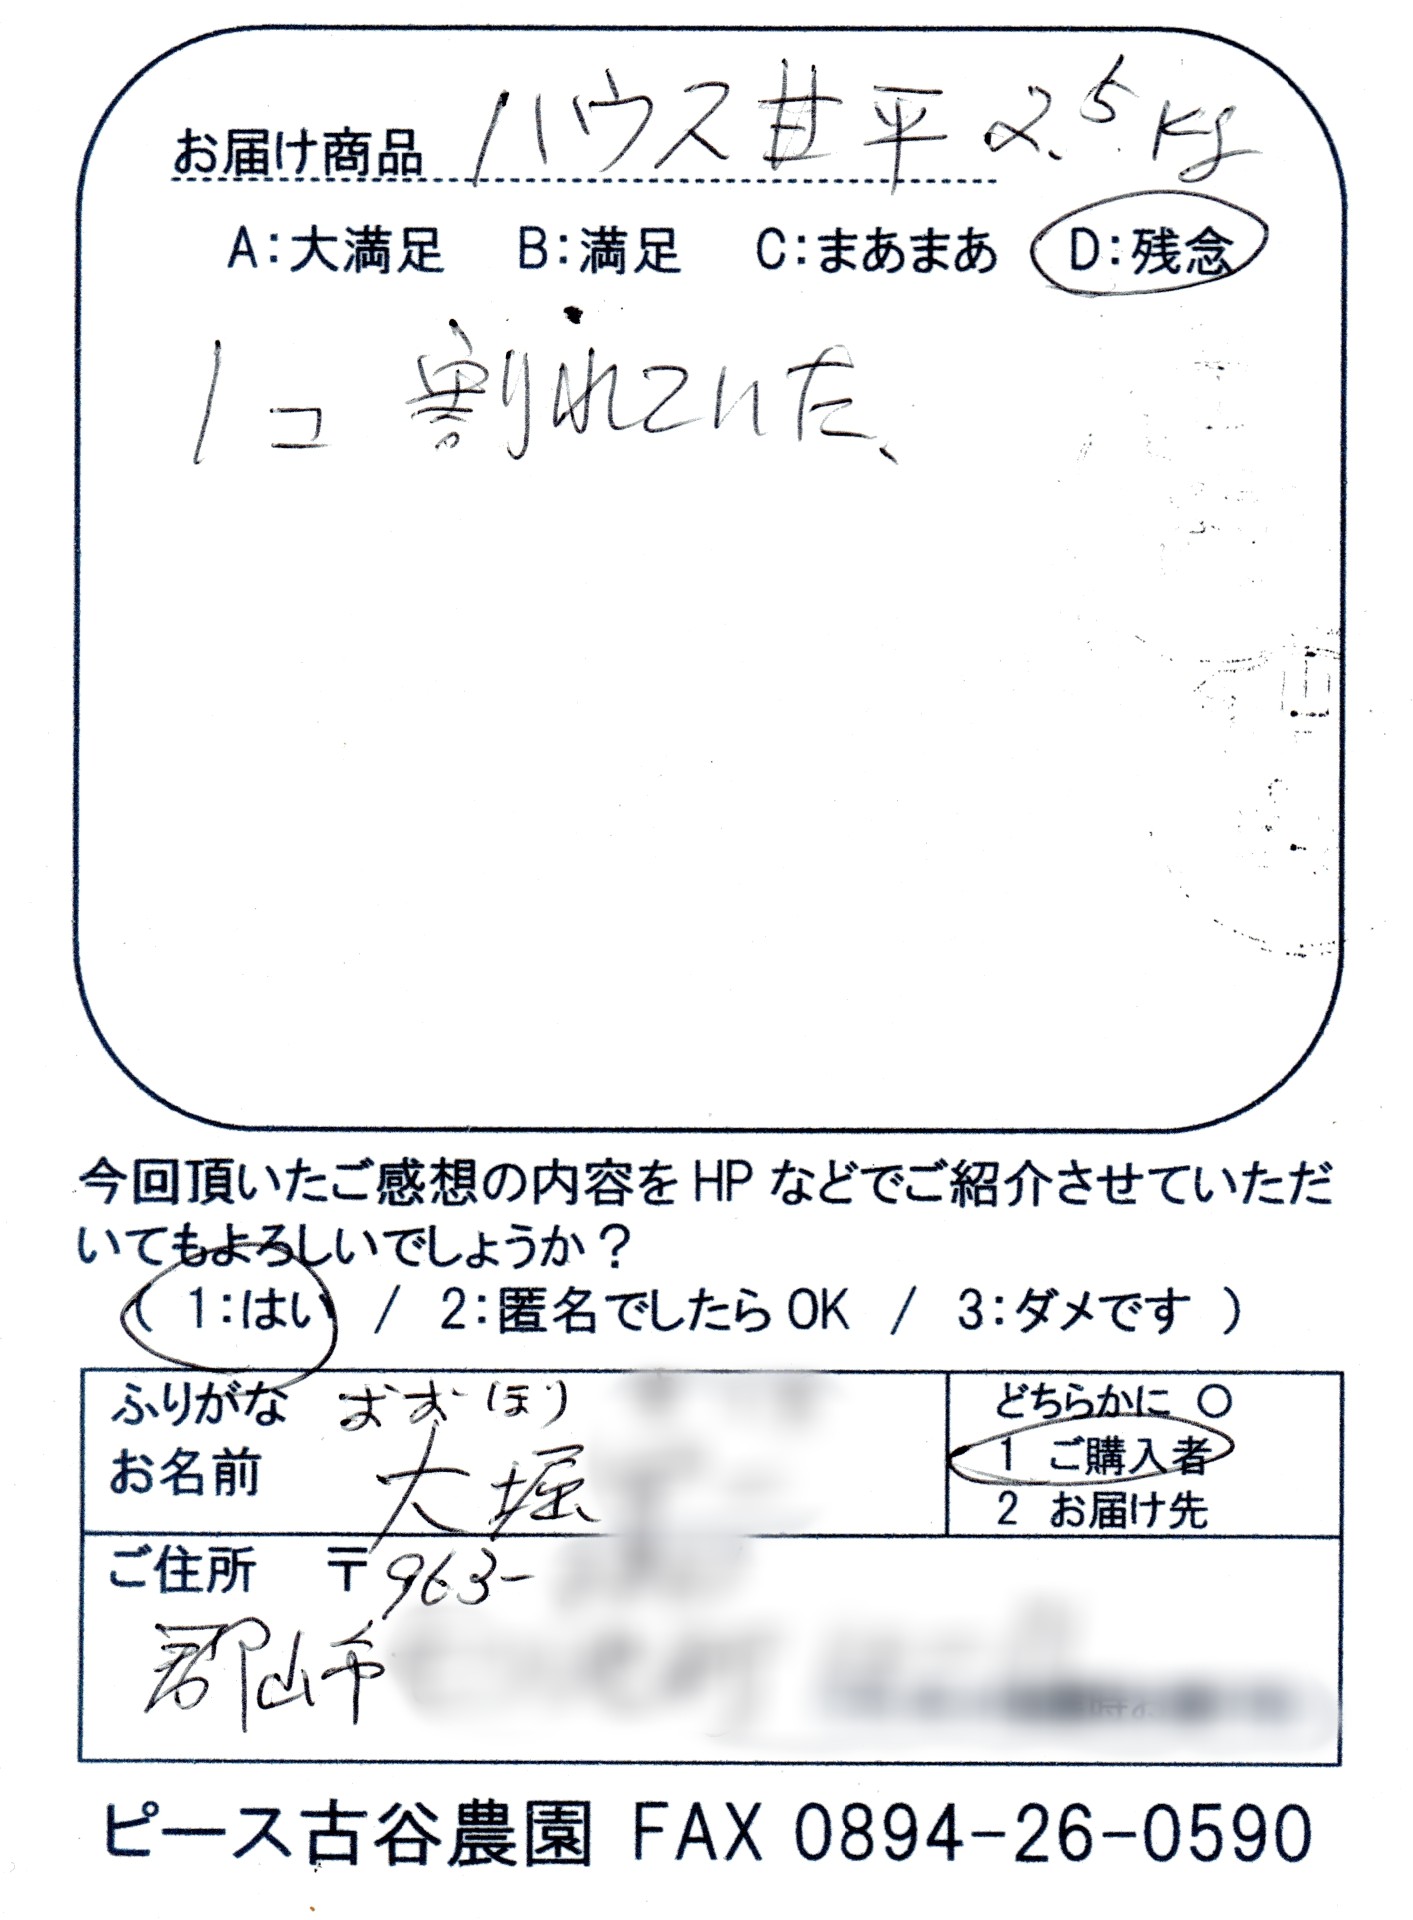 お届け商品 ハウス甘平 2.5kg
A:大満足 B:満足 C:まあまあ D:残念
1コ 割れていた、
今回頂いたご感想の内容をHPなどでご紹介させていただ
いてもよろしいでしょうか?
( 1:はい / 2:匿名でしたらOK / 3:ダメです )
ふりがな おおほり
お名前 大堀
どちらかに ○
1 ご購入者
2 お届け先
ご住所 〒963-
郡山市
ピース古谷農園 FAX 0894-26-0590